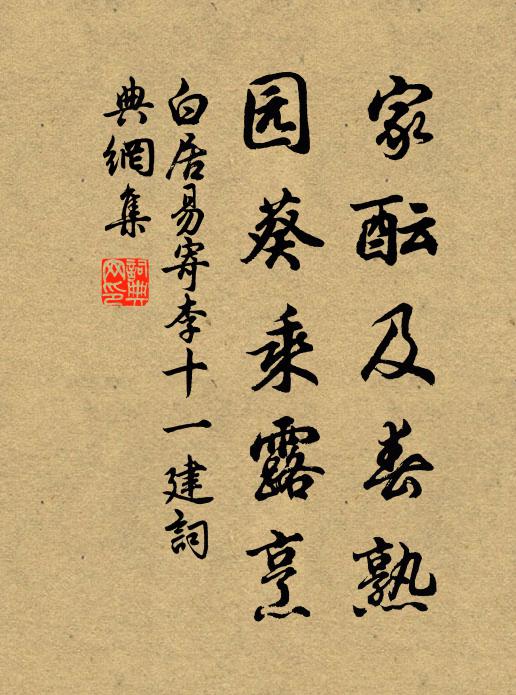 家酝及春熟
园葵乘露烹
白居易寄李十一建詞
典網集
詞典網印